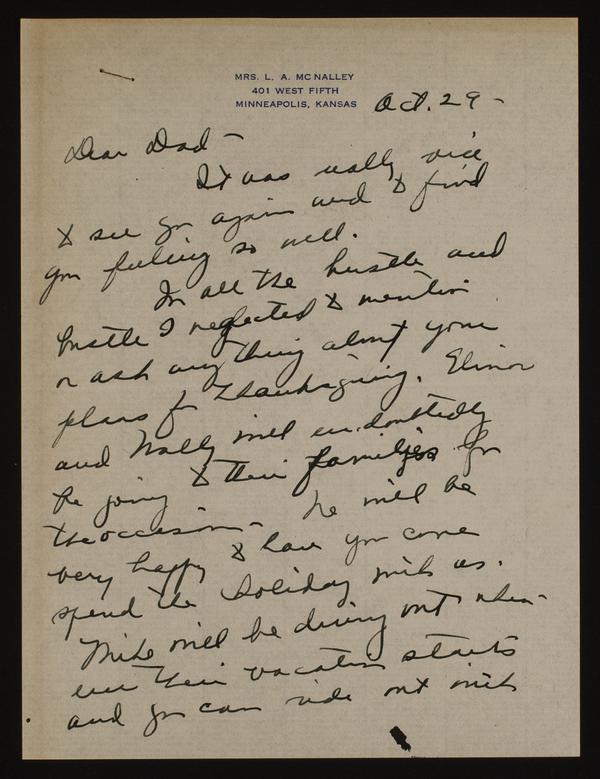 MRS. L. A. MCNALLEY
401 WEST FIFTH
MINNEAPOLIS, KANSAS
Oct. 29 -
Dear Dad -
It was really nice
to see you again and to find
you feeling so well.
In all the hustle and
bustle I neglected to mention
or ask anything about your
plans for Thanksgiving. Elinor
and Wally will undoubtedly
be going to their families for
the occasion - we will be
very happy to have you come
spend the holiday with us.
Mike will be driving out when-
ever their vacation starts
and you can ride out with